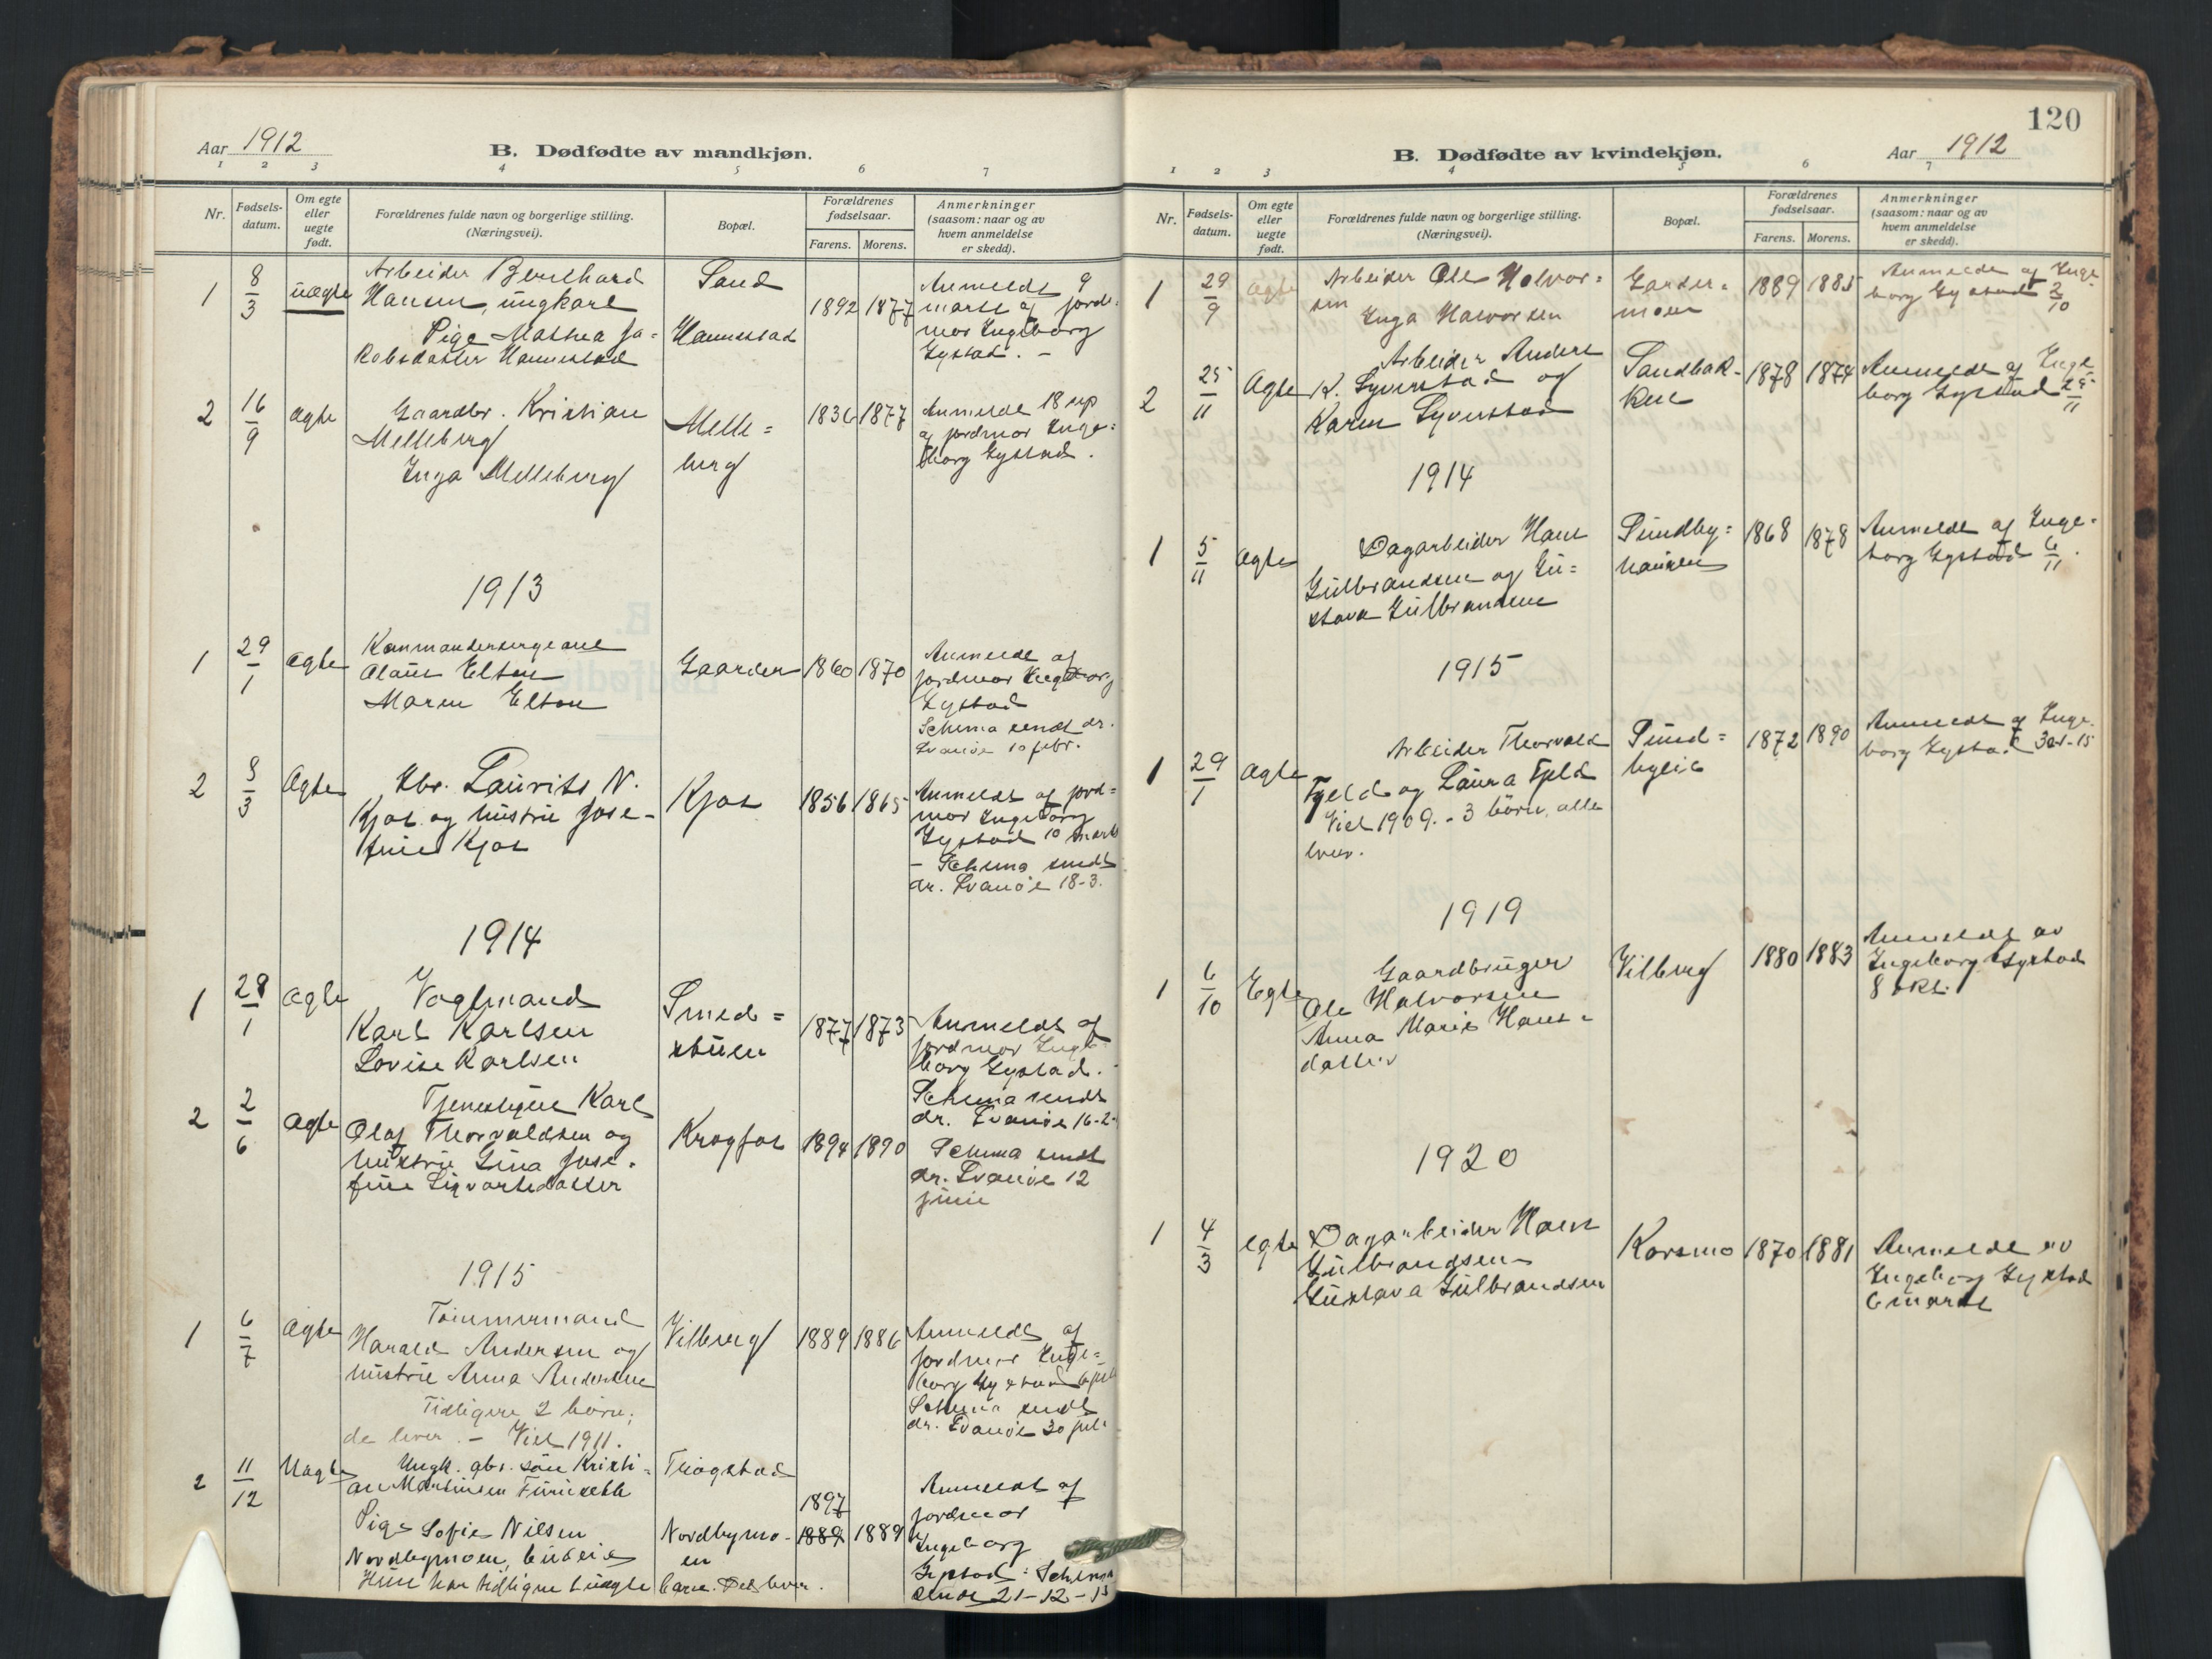 Aar 1912
B. Dødfødte av mandkjøn.
1 2 3 4 5 6 7
Nr.
Fødsels-
datum.
Om egte
eller
uegte
født.
Forældrenes fulde navn og borgerlige stilling.
(Næringsvei).
Bopæl.
Forældrenes
fødselsaar.
Farens. Morens.
Anmerkninger
(saasom: naar og av
hvem anmeldelse
er skedd).
1 8/3 uægte
Arbeider Bernhard
Hansen, ungkarl
Pige Mathea Ja-
kobsdatter Hannestad
Sand
Hannestad
1892 1877
Anmeldt 9
marts af jorde-
mor Ingeborg
Gystad. -
2 16/9 ægte
Gaardbr. Kristian
Melleberg
Inga Melleberg
Melle=
berg
1836 1877
Anmeldt 18 sep
af jordmor Inge=
borg Gystad.
1913
1 29/1 ægte
Kommandersergeant
Olaus Elton
Maren Elton
Gaarder
1860 1870
Anmeldt af
jordmor Ingeborg
Gystad
Schema sendt dr.
Svanøe 10 febr.
2 8/3 Ægte
Gbr. Laurits N.
Kjos og hustru Jose-
fine Kjos
Kjos
1856 1865
Anmeldt af jord=
mor Ingeborg
Gystad 10 marts
- Schema sendt
dr. Svanøe 18-3.
1914
1 28/1 ægte
Vogtmand
Karl Karlsen
Lovise Karlsen
Smed=
stuen
1877 1873
Anmeldt af
jordmor Inge-
borg Gystad.
Schema sendt
dr. Svanøe 16-2-
2 2/6 ægte
Tjenestegut Karl
Olaf Thorvaldsen og
hustru Gina Jose-
fine Sigvartsdatter
Krogfos
1894 1890
Schema sendt
dr. Svanøe 12
juni
1915
1 6/7 ægte
Tømmermand
Harald Andersen og
hustru Anna Andersen
Tidligere 2 børn,
de lever. - Viet 1911.
Vilberg
1889 1886
Anmeldt af
jordmor Inge=
borg Gystad 6 juli
Schema sendt
dr. Svanøe 30 juli
2 11/12 Uægte
Ungk. gbr. søn Kristi=
an Martinsen Furuseth
Pige Sofie Nilsen
Nordbymoen, budeie
Hun har tidligere 1 uægte barn. Det lever.
Trøgstad
Nordbymo-
en
1897
1889 1889
Anmeldt af
jordmor
Ingeborg
Gystad: Schema
sendt 21-12-15
120
B. Dødfødte av kvindekjøn.
Aar 1912
1 2 3 4 5 6 7
Nr.
Fødsels-
datum.
Om egte
eller
uegte
født.
Forældrenes fulde navn og borgerlige stilling.
(Næringsvei).
Bopæl.
Forældrenes
fødselsaar.
Farens. Morens.
Anmerkninger
(saasom: naar og av
hvem anmeldelse
er skedd).
1 29/9 ægte
Arbeider Ole Halvor=
sen
Inga Halvorsen
Garder-
moen
1889 1885
Anmeldt af Inge-
borg Gystad 2/10
2 25/11 Ægte
Arbeider Anders
K. Syverstad og
Karen Syverstad
Sandbak-
ken
1878 1874
Anmeldt af Inge
borg Gystad 25/11
1914
1 5/11 ægte
Dagarbeider Hans
Gulbrandsen og Gu=
stava Gulbrandsen
Sundby=
haugen
1868 1878
Anmeldt af Inge-
borg Gystad 6/11.
1915
1 29/1 ægte
Arbeider Thorvald
Fjeld og Laura Fjeld
Viet 1909. - 3 børn, alle
lever.
Sund=
byeie
1872 1890
Anmeldt af Inge-
borg Gystad 30-1-15
1919
1 6/10 Egte
Gaardbruger
Ole Halvorsen
Anna Marie Hans-
datter
Vilberg
1880 1883
Anmeldt av
Ingeborg Gystad
8 okt.
1920
1 4/3 egte
Dagarbeider Hans
Gulbrandsen
Gustava Gulbrandsen
Korsmo
1870 1881
Anmeldt av
Ingeborg Gystad
6 marts